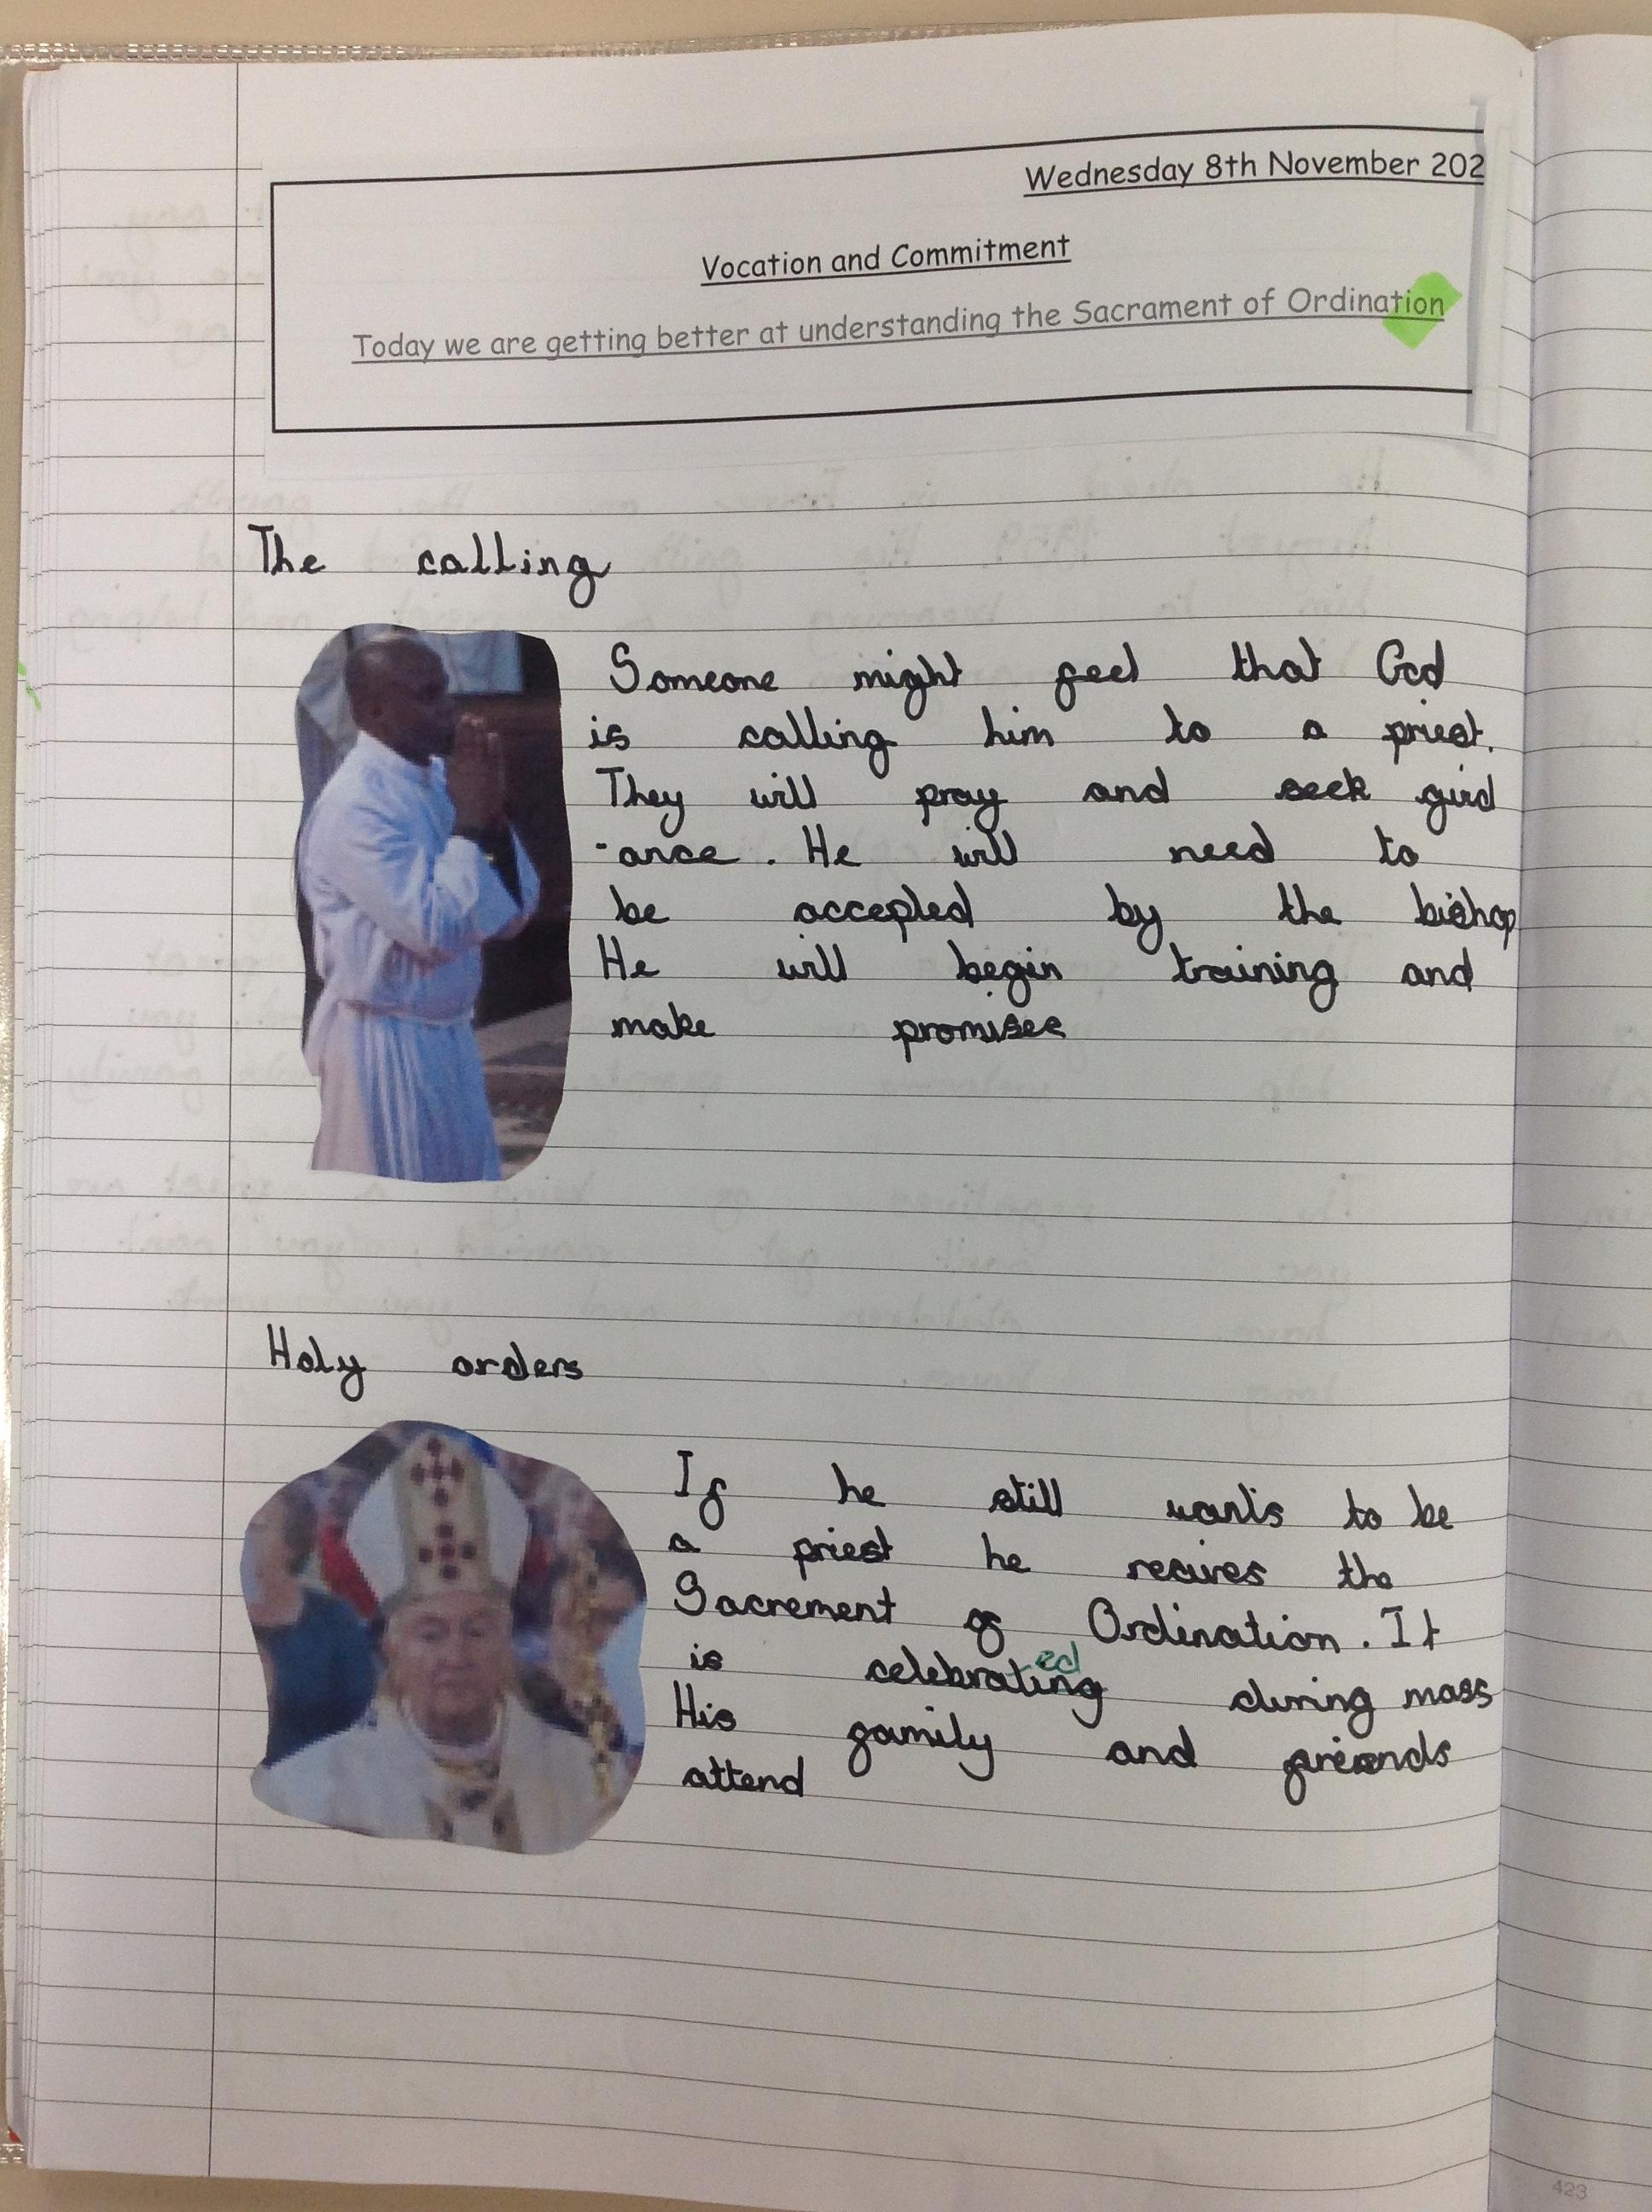 Wednesday 8th November 202
Vocation and Commitment
Today we are getting better at understanding the Sacrament of Ordination
The calling
Someone might feel that God
is calling him to a priest.
They will pray and seek guid
-ance. He will need to
be accepted by the bishop
He will begin training and
make promises
Holy orders
If he still wants to be
a priest he recives the
Sacrement of Ordination. It
is celebrating ed during mass
His family and friends
attend
423